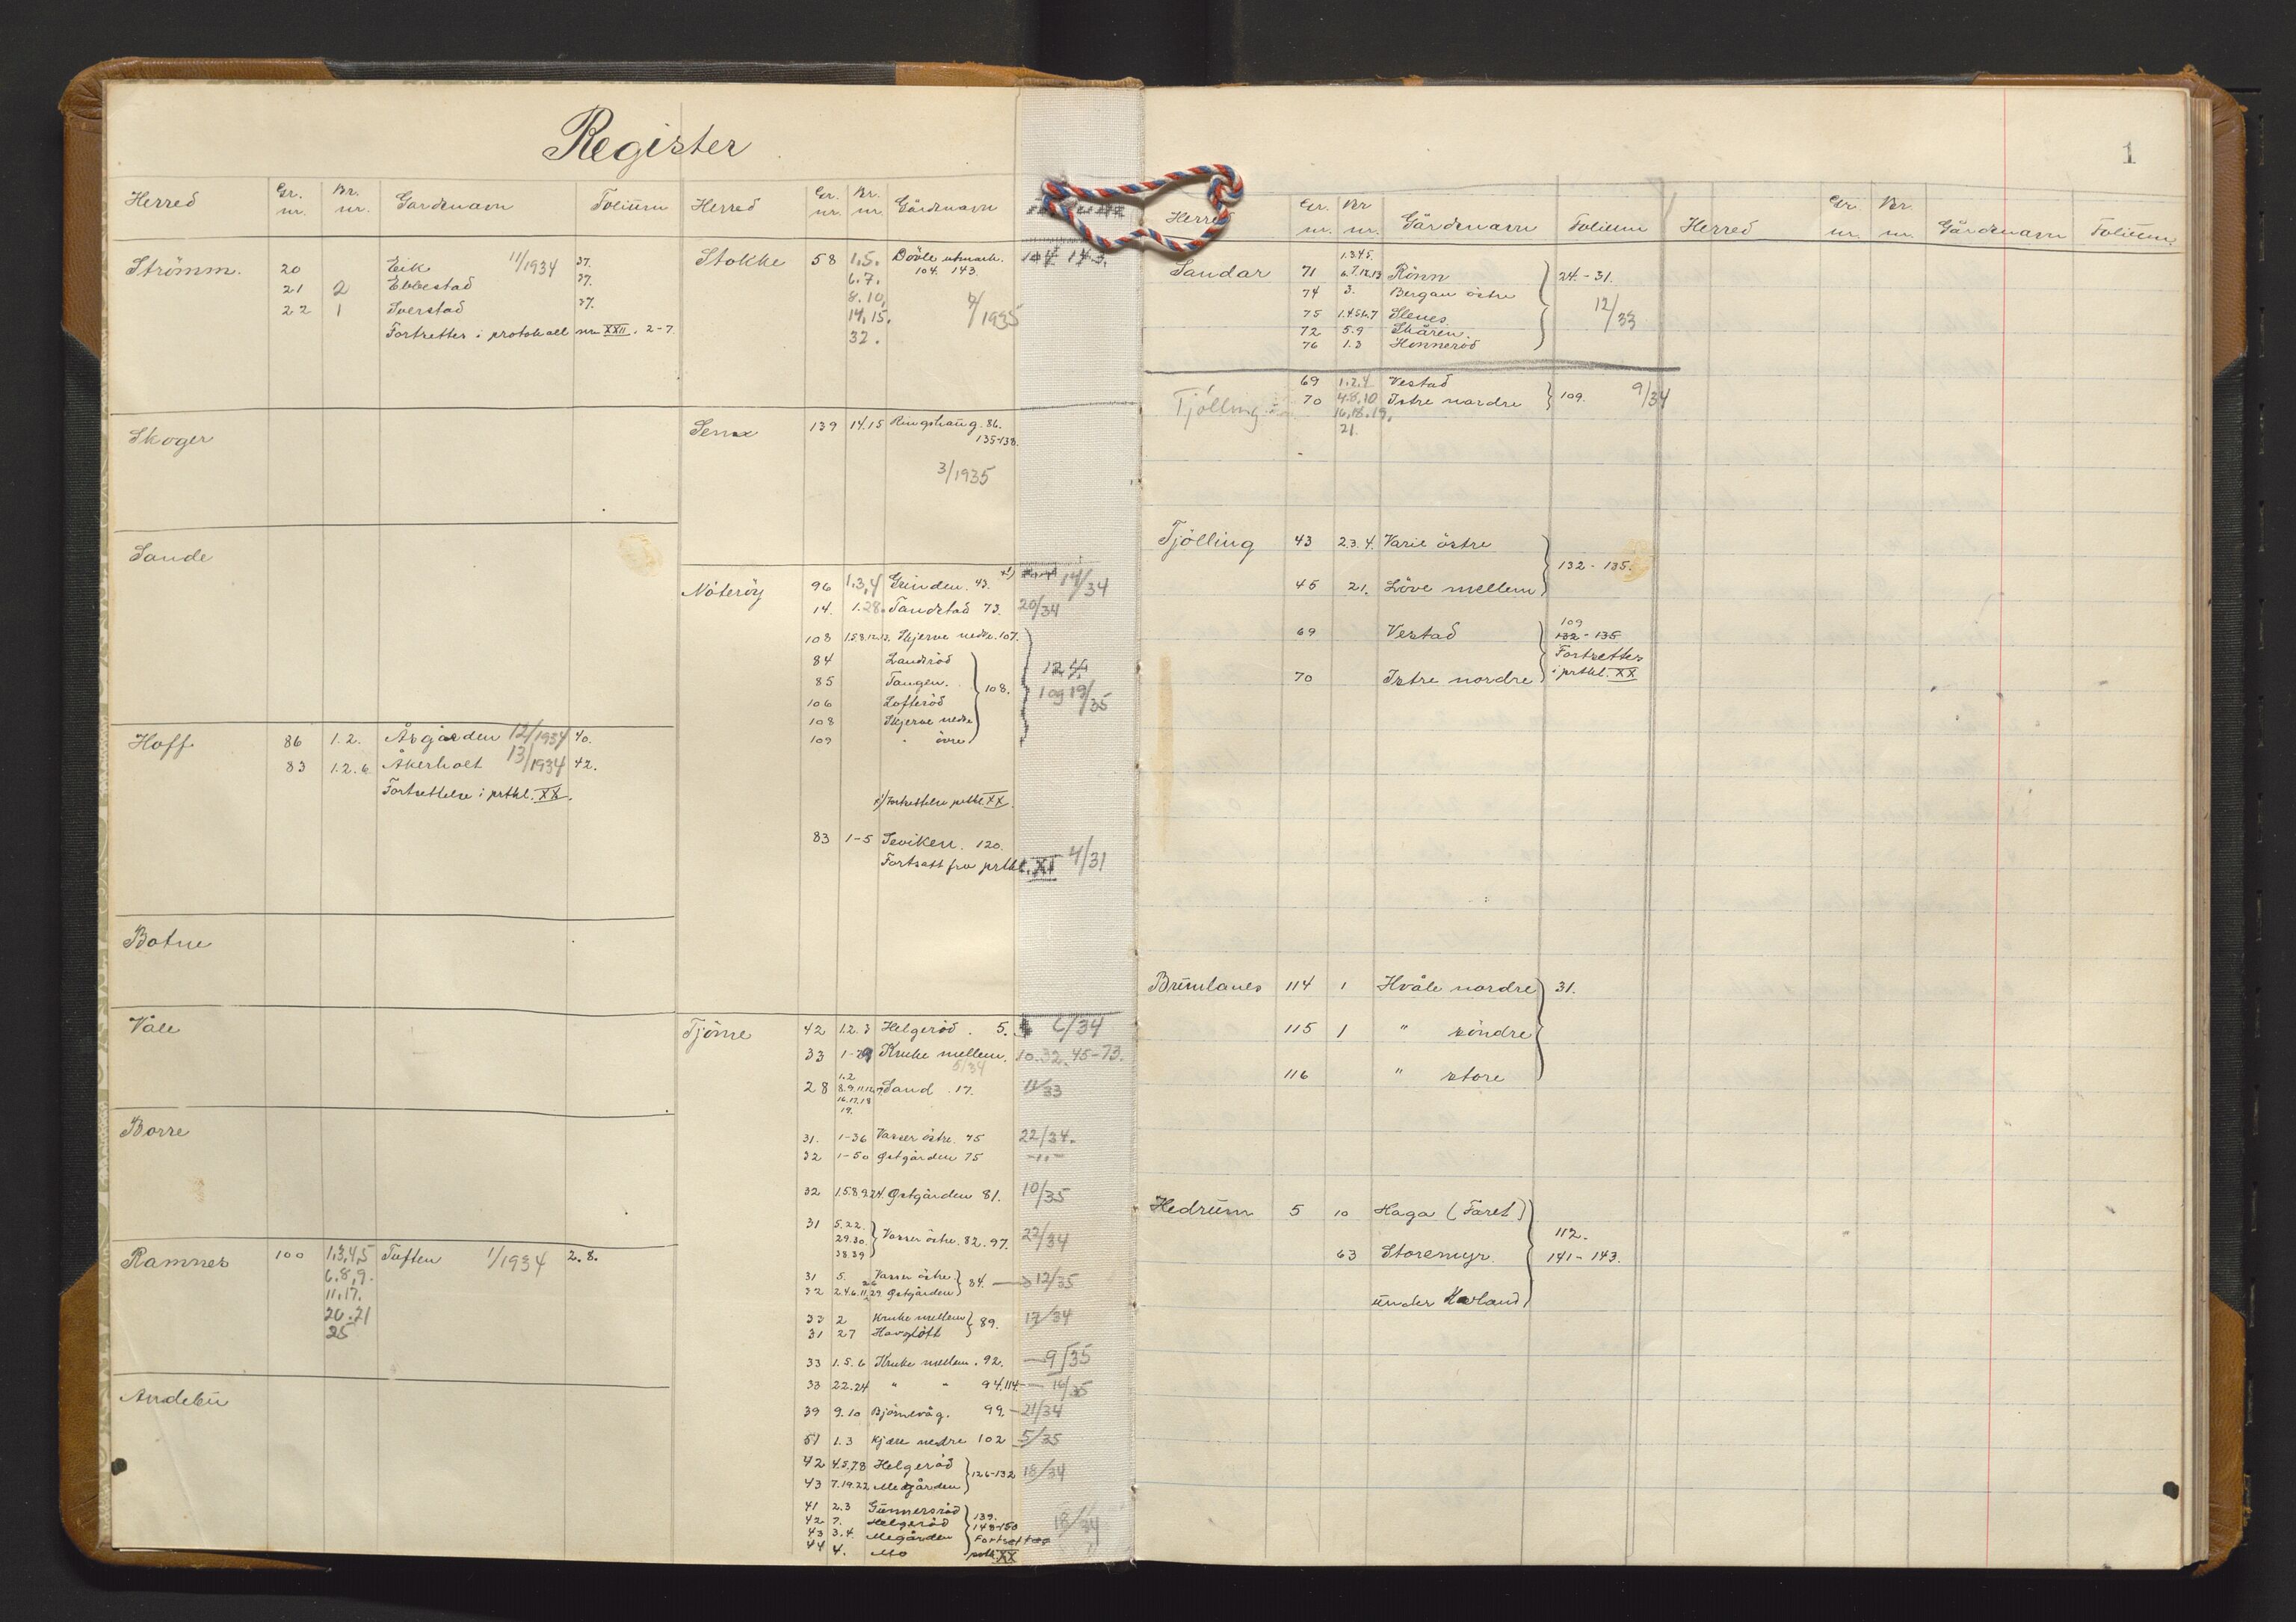 Register
Herred Gr. nr. Br. nr. Gårdsnavn Folium
Strömm. 20 Eik 11/1934 37.
21 2 Ebbestad 37.
22 1 Sverstad 37.
Fortsettes i protokoll nr. XXII. 2-7.
Skoger
Sande
Hoff 86 1.2. Åsgården 12/1934 40.
83 1.2.6. Åkerholt 13/1934 42.
Fortsettelse i prtkl. XX.
Botne
Våle
Borre
Ramnes 100 1,3,4,5 Tuften 1/1934 2.8.
6,8,9.
11.17.
20.21
25
Andebu
Herred Gr. nr. Br. nr. Gårdsnavn
Stokke 58 1.5. Dövle utmark. 104. 143.
6.7. 104. 143.
8.10,
14.15, /1935
32.
Sem 139 14.15 Ringshaug. 86.
135-138.
3/1935
Nöteröy 96 1,3,4 Grinden. 43. x) 14/34
14. 1.28. Tandstad 73. 20/34
108 1.5.8.12.13. Skjerve nedre. 107.
84 Landsröd
85 Tangen. 108. 1 og 19/35
106 Lofteröd
108 Skjerve nedre
109 " övre
x) Fortsettelse prtkl. XX.
83 1-5 Seviken. 120.
Fortsatt fra prtkl. XI 4/31
Tjöme 42 1.2.3 Helgeröd. 5. 6/34
33 1-29 Kruke mellem. 10.32.45-73.
5/34
1.2
28 8.9.11.12. Sand. 17. 11/33
16.17.18
19.
31. 1-36 Vasser östre. 75 22/34.
32 1-50 Østgården 75 -"-
32 1.5.8.9.24. Østgården 81. 10/35
31 5.22.
29.30. Vasser östre. 82. 97. 22/34
38.39
31 5. Vasser östre 84. 12/35
32 2.4.6.11.29. Østgården
33 2 Kruke mellem 89. 17/34
31 27 Havglött
33 1.5.6 Kruke mellem. 92. - 9/35
33 22.24 " " 94.114. - 16/35
39 9.10 Björnevåg. 99. - 21/34
51 1.3 Kjære nedre 102 5/35
42 4.5.7.8 Helgeröd 126-132 18/34
43 7.19.22 Megården
41 2.3 Gunnersröd 139.
42 7. Helgeröd 148-150 18/34
43 3.4. Megården Fortsettes
44 4. Mo prtk XX
1
Herred Gr. nr. Br nr. Gårdsnavn Folium Herred Gr. nr. Br. nr. Gårdsnavn Folium.
1.3.4.5.
Sandar 71 6.7.12.13 Rönn 24.-31.
74 3. Bergan östre
75 1.4.5.6.7 Slenes 12/33
72 5.9 Skåren.
76 1.3 Honneröd
69 1.2.4 Vestad
Tjölling 70 4.8.10 Istre nordre 109. 9/34
16.18.19.
21.
Tjölling 43 2.3.4. Varil östre
132-135.
45 21. Löve mellem
109
69 Vestad 132-135
Fortsettes
70 Istre nordre i prtkl. XX
Brunlanes 114 1 Hvåle nordre 31.
115 1 " söndre
116 " store
Hedrum 5 10 Haga (Faret)
112.
63 Storemyr. 141-143.
under Havland